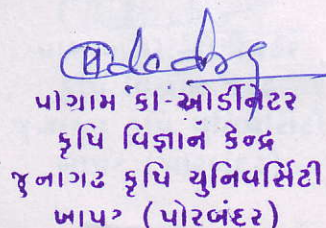 પોગામ કો-ઓર્ડીનેટર
કૃષિ વિજ્ઞાન કેન્દ્ર
જુનાગઢ કૃષિ યુનિવર્સિટી
ખાપટ (પોરબંદર)